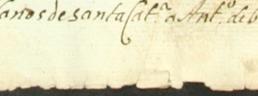 lanos de santa Cat.ª a Ant.º de b